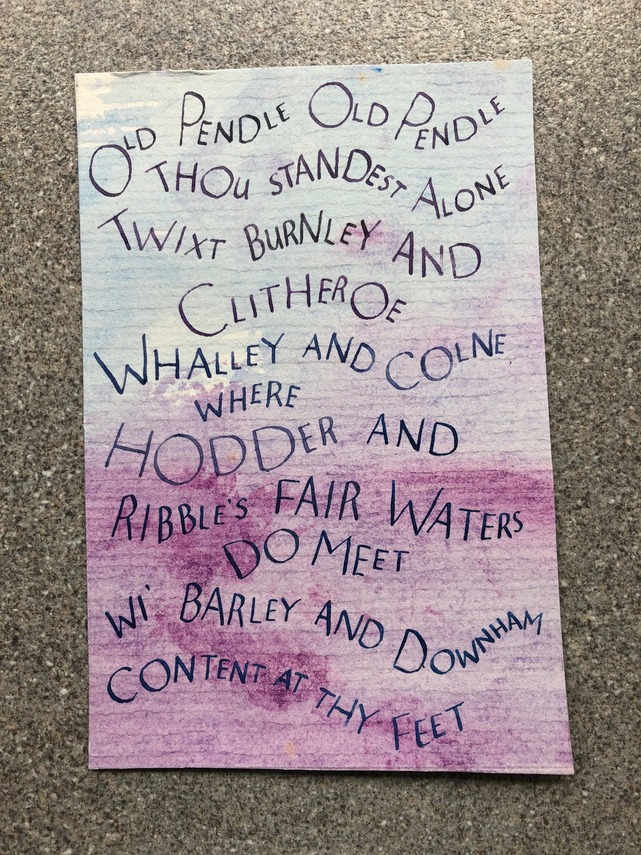 OLD PENDLE OLD PENDLE
THOU STANDEST ALONE
TWIXT BURNLEY AND
CLITHEROE
WHALLEY AND COLNE.
WHERE
HODDER AND
RIBBLE'S FAIR WATERS
DO MEET
WI' BARLEY AND DOWNHAM
CONTENT AT THY FEET